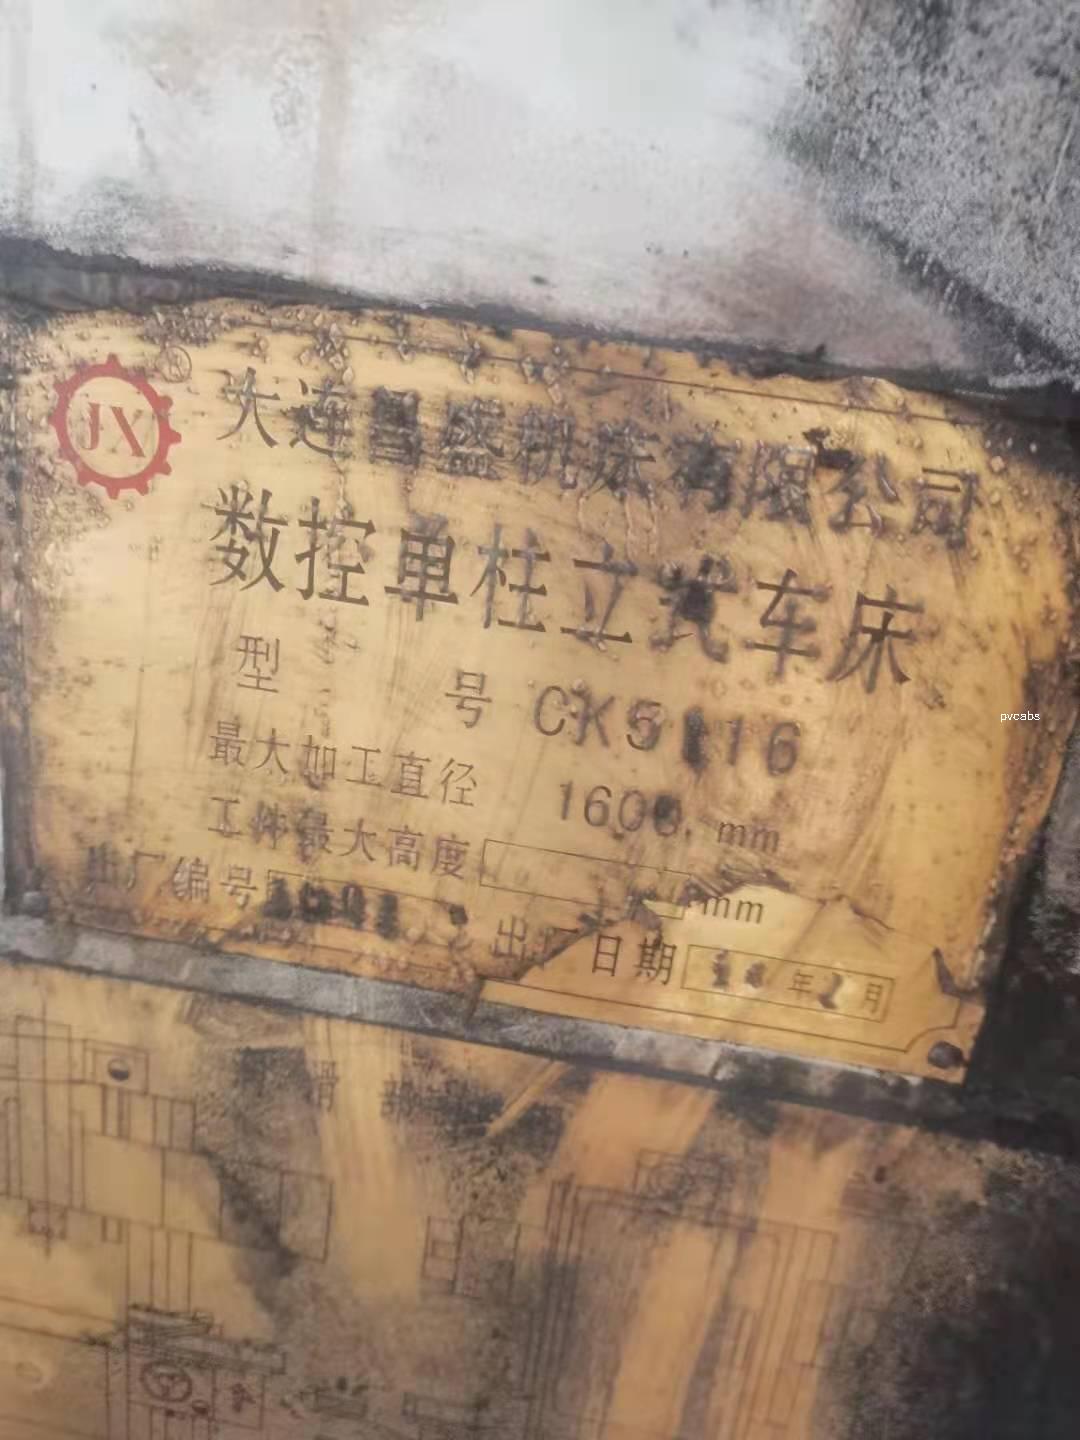 JX
大连昌盛机床有限公司
数控单柱立式车床
型 号 CK5116
最大加工直径 1600 mm
工件最大高度 mm
出厂编号
出厂日期 年 月
滑
pvcabs